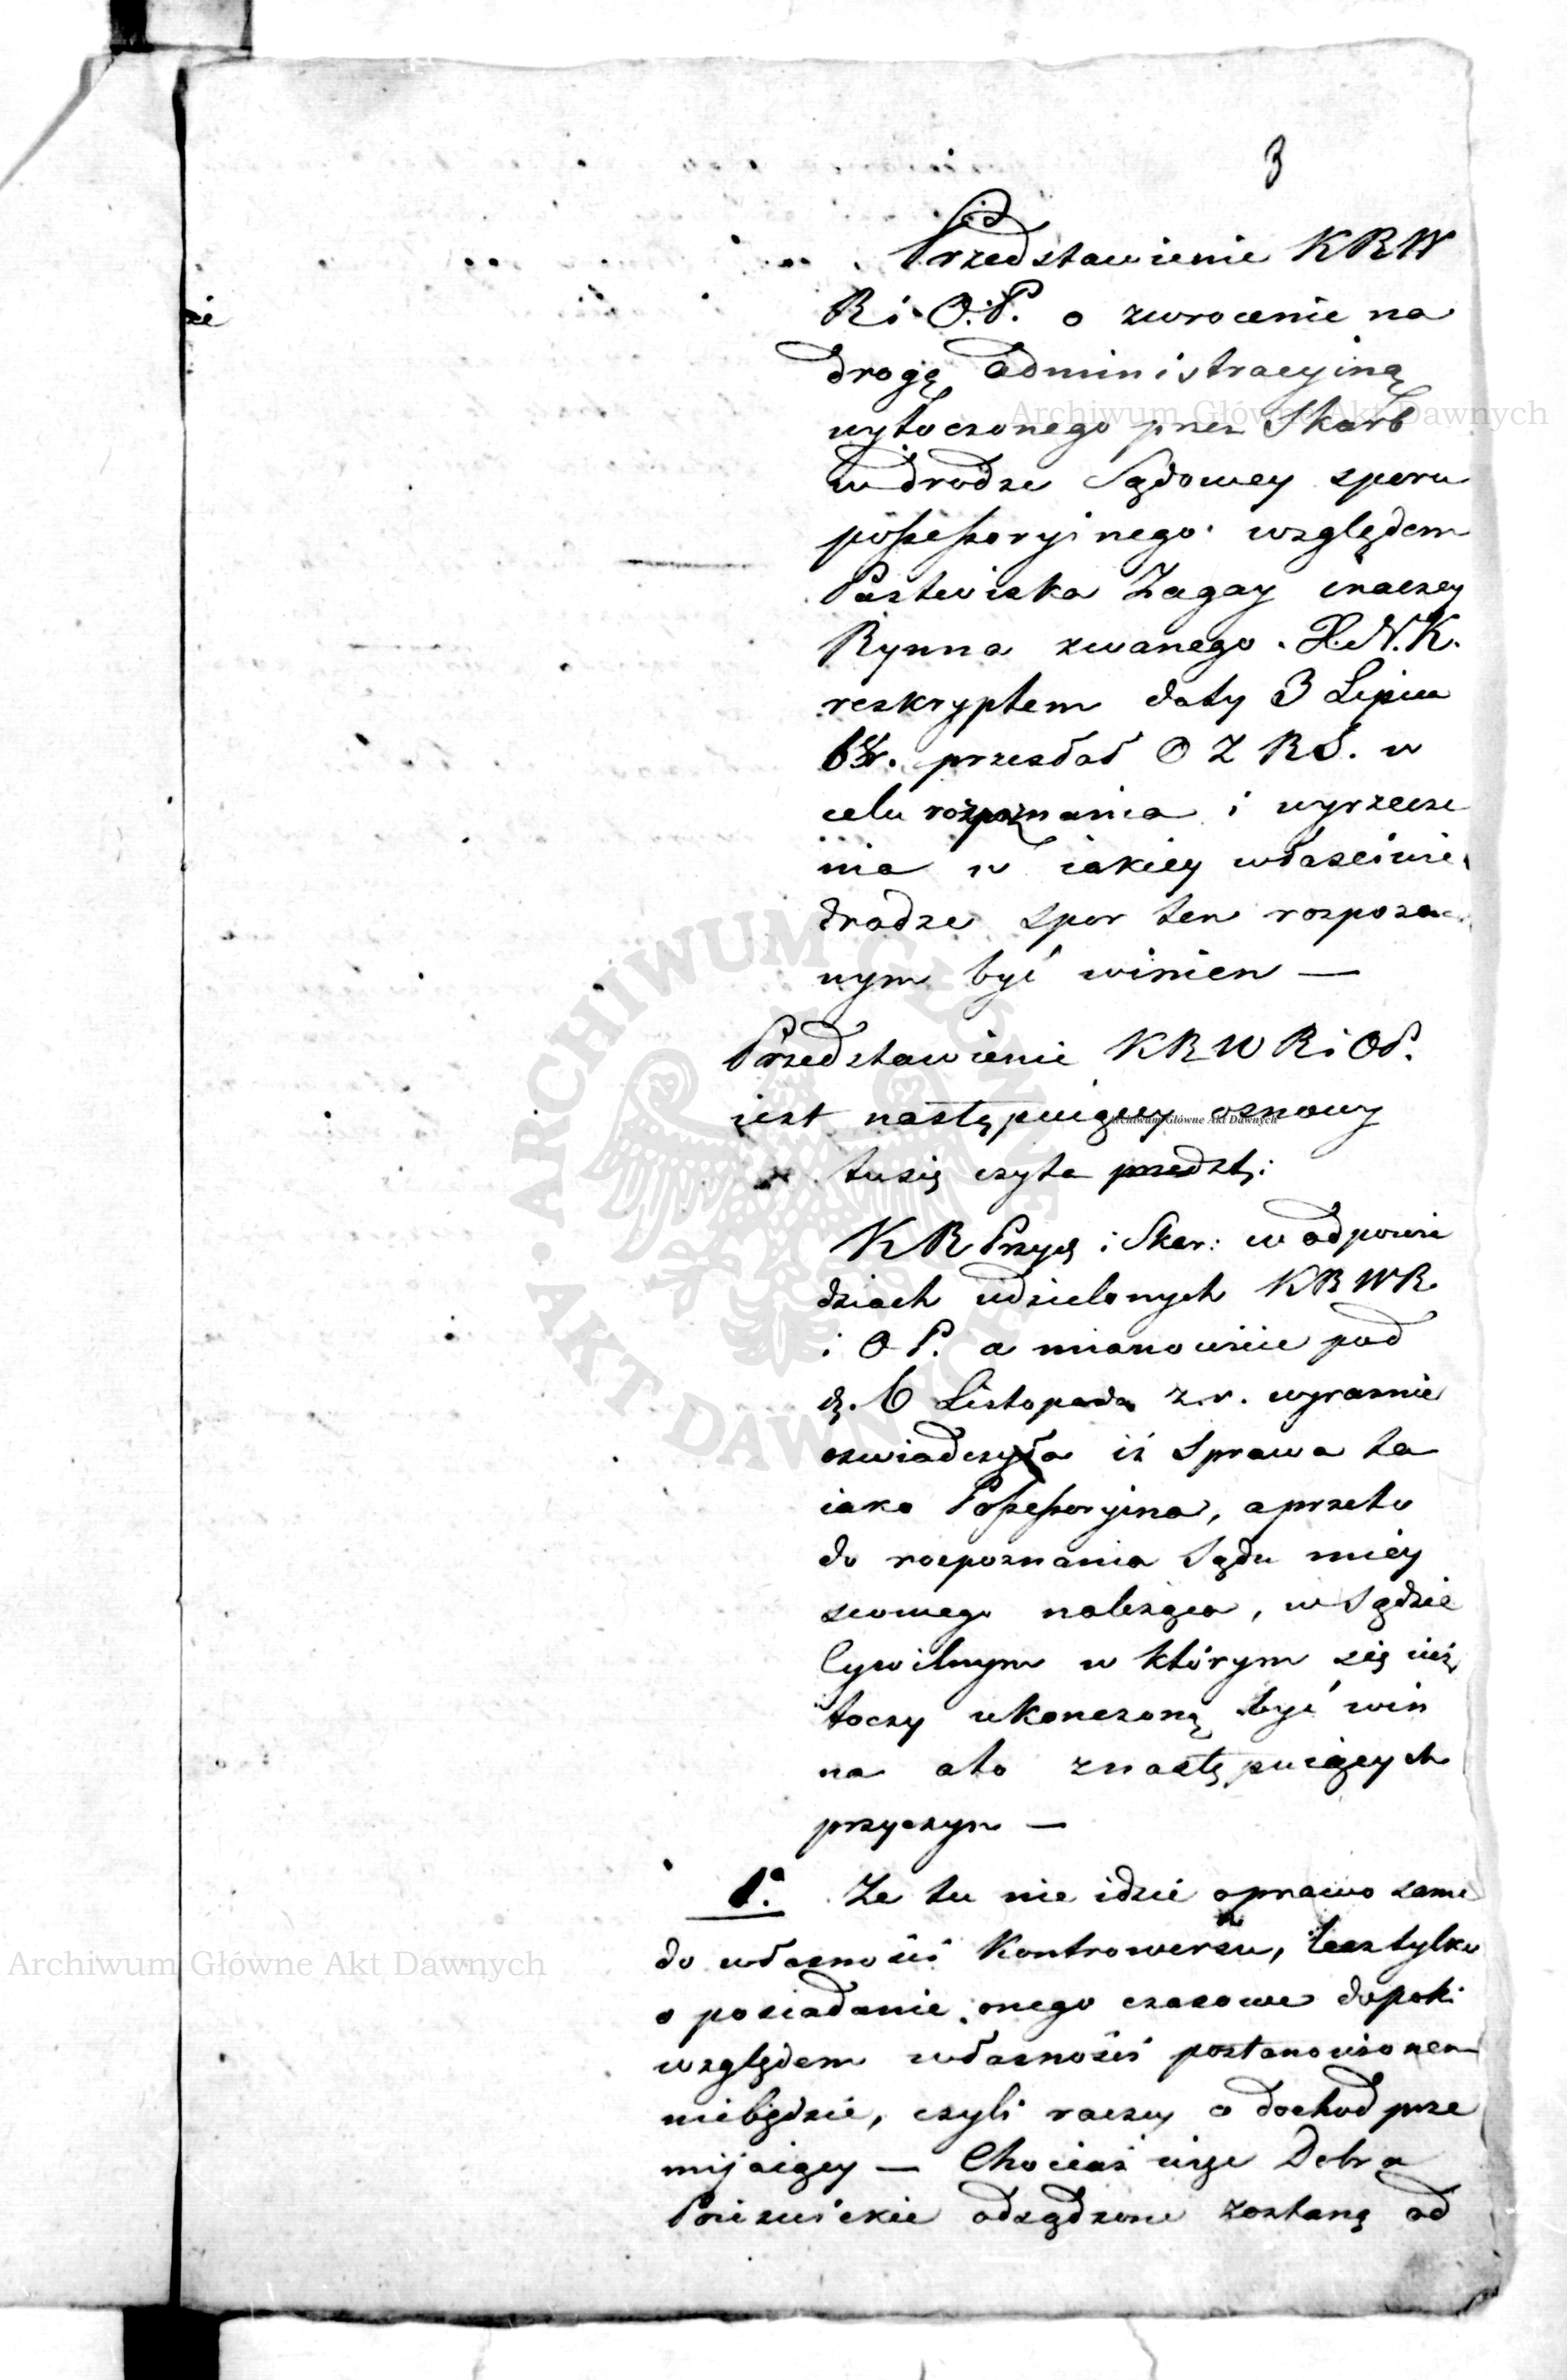 3
Przedstawienie KRW
R i O.P. o zwrocenie na
drogę administracyiną
wytoczonego przez Skarb
w drodze Sądowey sporu
possessoryinego względem
Pastwiska Zagay inaczey
Rynna zwanego . X.N.K.
reskryptem daty 3 Lipca
przesłał O Z R S. w
celu rozpoznania i wyrzecze
nia w iakiey właściwie
drodze spor ten rozpozna
nym być winien —
Przedstawienie KRW R i OP.
iest następuiący osnowy
tu się czyta przedst:
KR Przych i Skar: w odpowie
dziach udzielonych KRWR
i O P. a mianowicie pod
d. 6 Listopada z.r. wyraznie
oswiadczyła iż Sprawa ta
iako Possessoryina, a przeto
do rozpoznania Sądu miey
scowego należąca, w Sądzie
Cywilnym w którym się iuż
toczy ukończoną być win
na a to z następuiących
przyczyn —
1º. Ze tu nie idzie o prawo same
do własności Kontrowersu, lecz tylko
o posiadanie onego czasowe dopoki
względem własności postanowionem
niebędzie, czyli raczey o dochod prze
mijaiący — Chociaż więc Dobra
odsądzone zostaną od
że
Archiwum Główne Akt Dawnych
Archiwum Główne Akt Dawnych
Archiwum Główne Akt Dawnych
ARCHIWUM GŁÓWNE AKT DAWNYCH